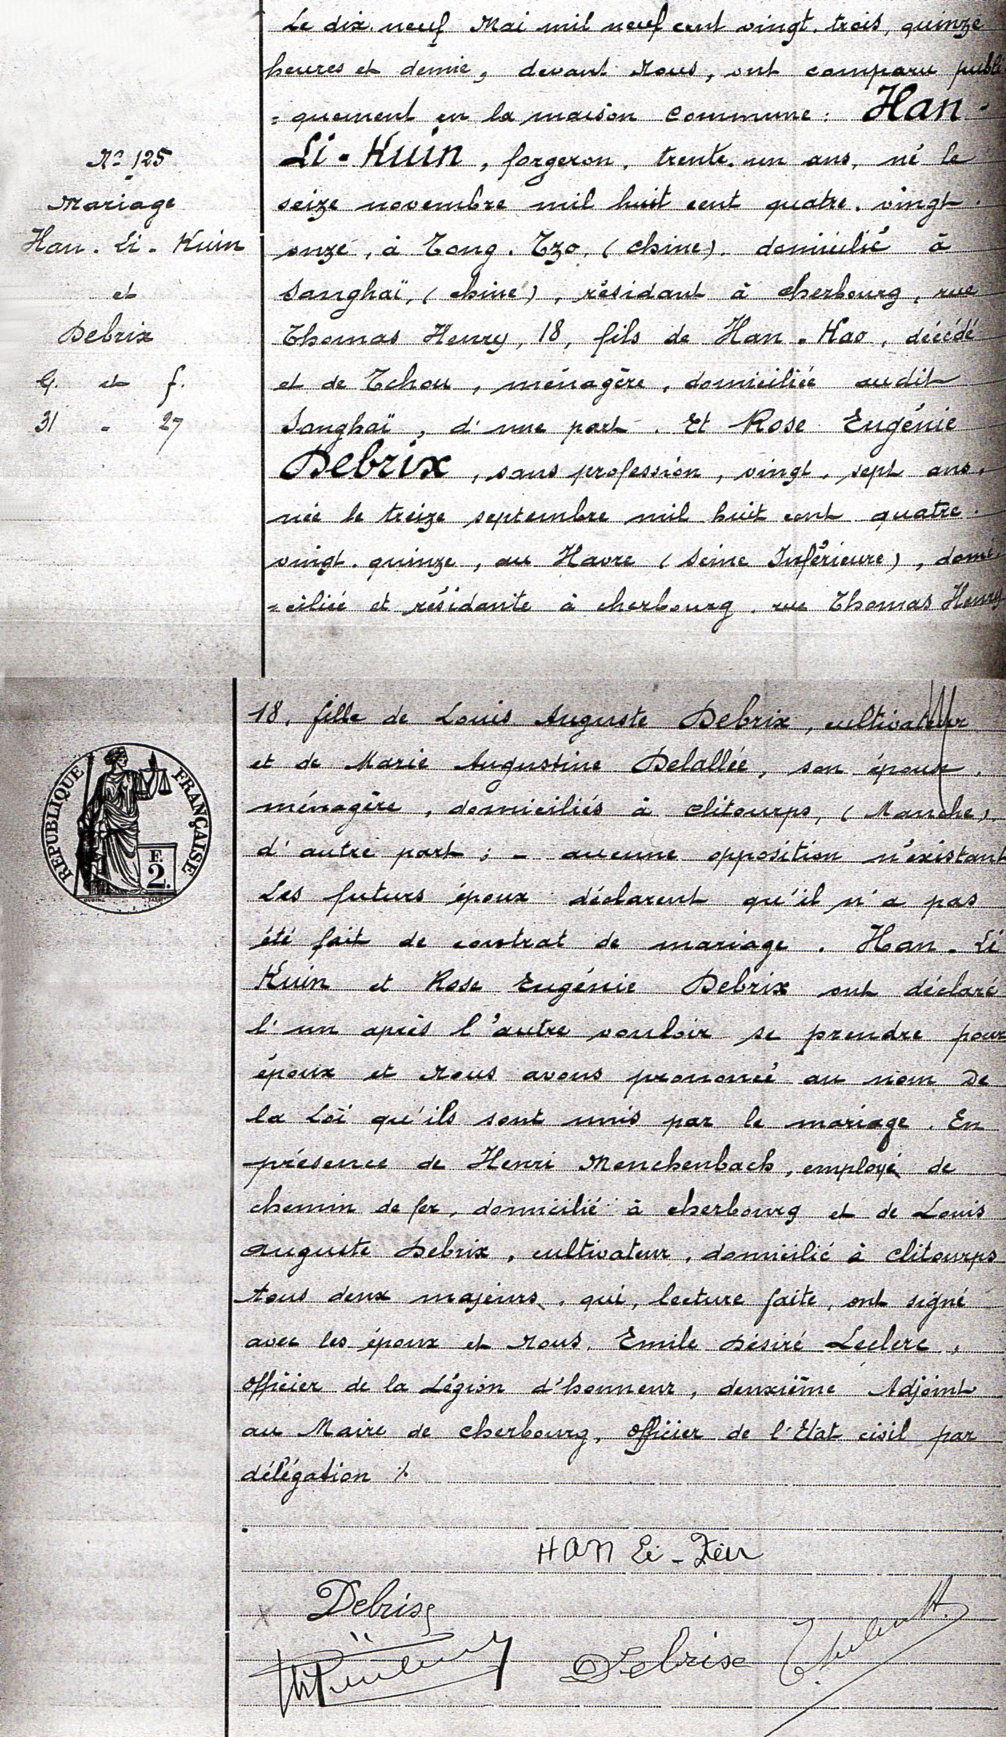 Le dix-neuf Mai mil neuf cent vingt-trois, quinze
heures et demie, devant Nous, ont comparu publi
=quement en la maison commune : Han -
Li - Kuin, forgeron, trente-un ans, né le
seize novembre mil huit cent quatre-vingt-
onze, à Tong-Tzo, (Chine), domicilié à
Sanghaï, (Chine), résidant à Cherbourg, rue
Thomas Henry, 18, fils de Han-Kao, décédé
et de Tchou, ménagère, domiciliée audit
Sanghaï, d'une part. Et Rose Eugénie
Debrix, sans profession, vingt-sept ans,
née le treize septembre mil huit cent quatre-
vingt-quinze, au Havre (Seine Inférieure), domi-
=ciliée et résidante à Cherbourg, rue Thomas Henry
N° 125
Mariage
Han - Li - Kuin
et
Debrix
G. et f.
31 - 27
18, fille de Louis Auguste Debrix, cultivateur
et de Marie Augustine Delallée, son épouse,
ménagère, domiciliés à Clitourps, (Manche),
d'autre part ; - aucune opposition n'existant
Les futurs époux déclarent qu'il n'a pas
été fait de contrat de mariage. Han - Li
Kuin et Rose Eugénie Debrix ont déclaré
l'un après l'autre vouloir se prendre pour
époux et Nous avons prononcé au nom De
la Loi qu'ils sont unis par le mariage. En
présence de Henri Menchenbach, employé de
chemin de fer, domicilié à Cherbourg et de Louis
Auguste Debrix, cultivateur, domicilié à Clitourps
tous deux majeurs, qui, lecture faite, ont signé
avec les époux et Nous, Emile Désiré Leclerc,
Officier de la Légion d'honneur, deuxième Adjoint
au Maire de Cherbourg, Officier de l'Etat civil par
délégation %
RÉPUBLIQUE FRANÇAISE
F.
2.
HAN Li - Kiu
Debrix
Debrix